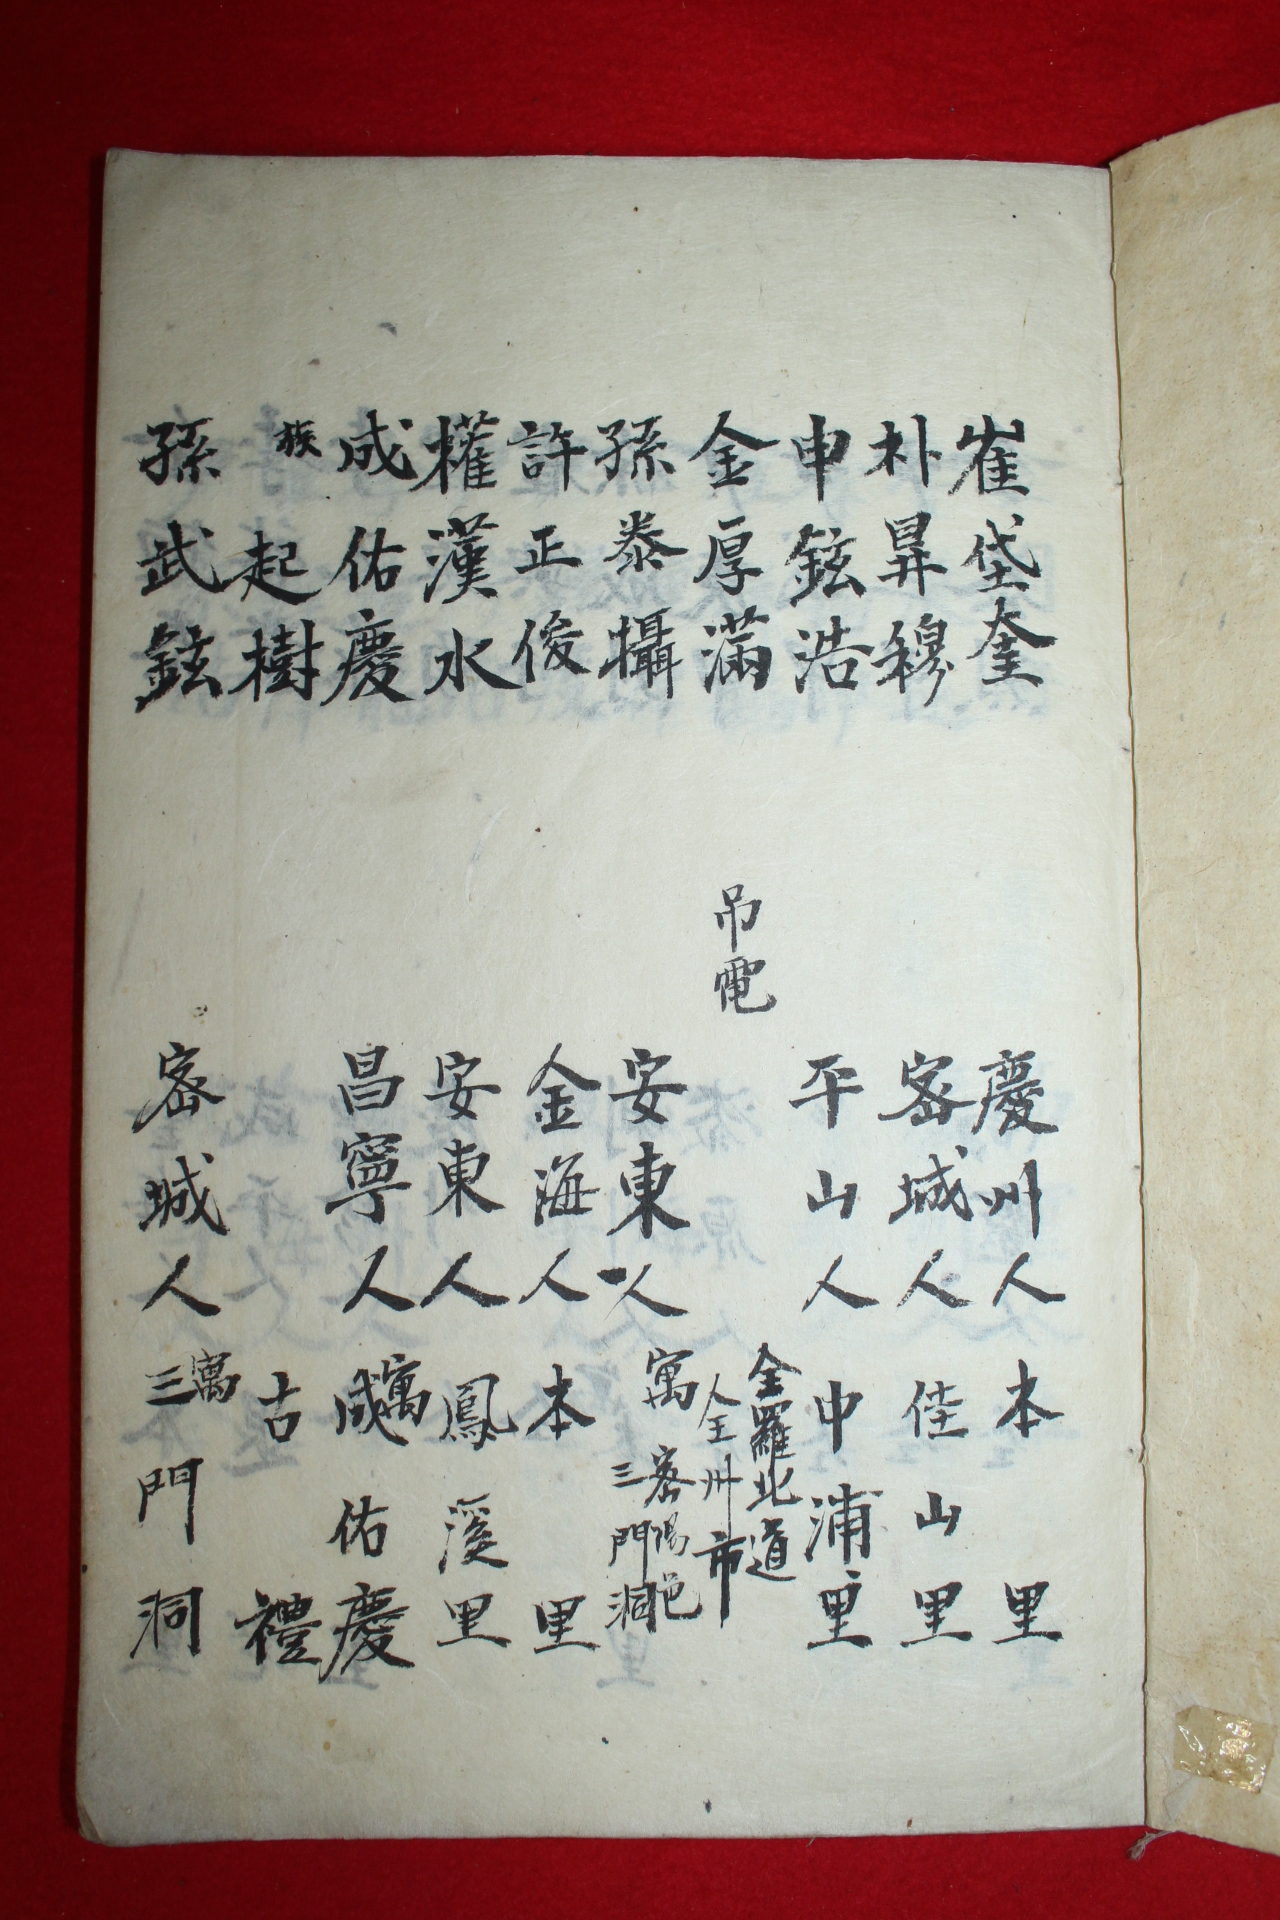 崔垈奎 慶州人 本里
朴昇穆 密城人 佳山里
申鉉浩 平山人 中浦里
金厚滿 吊電 全羅北道 全州市
孫泰攝 安東人 寓 密陽邑 三門洞
許正俊 金海人 本里
權漢水 安東人 鳳溪里
成佑慶 昌寧人 寓 成佑慶
族 起樹 古禮
孫武鉉 密城人 寓 三門洞